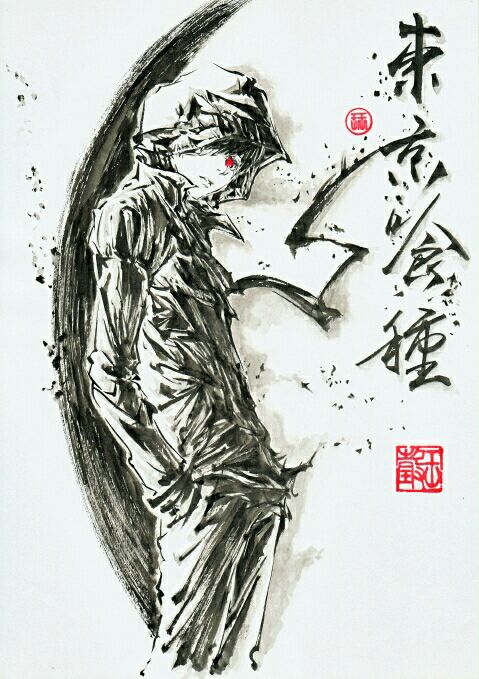 東京喰種